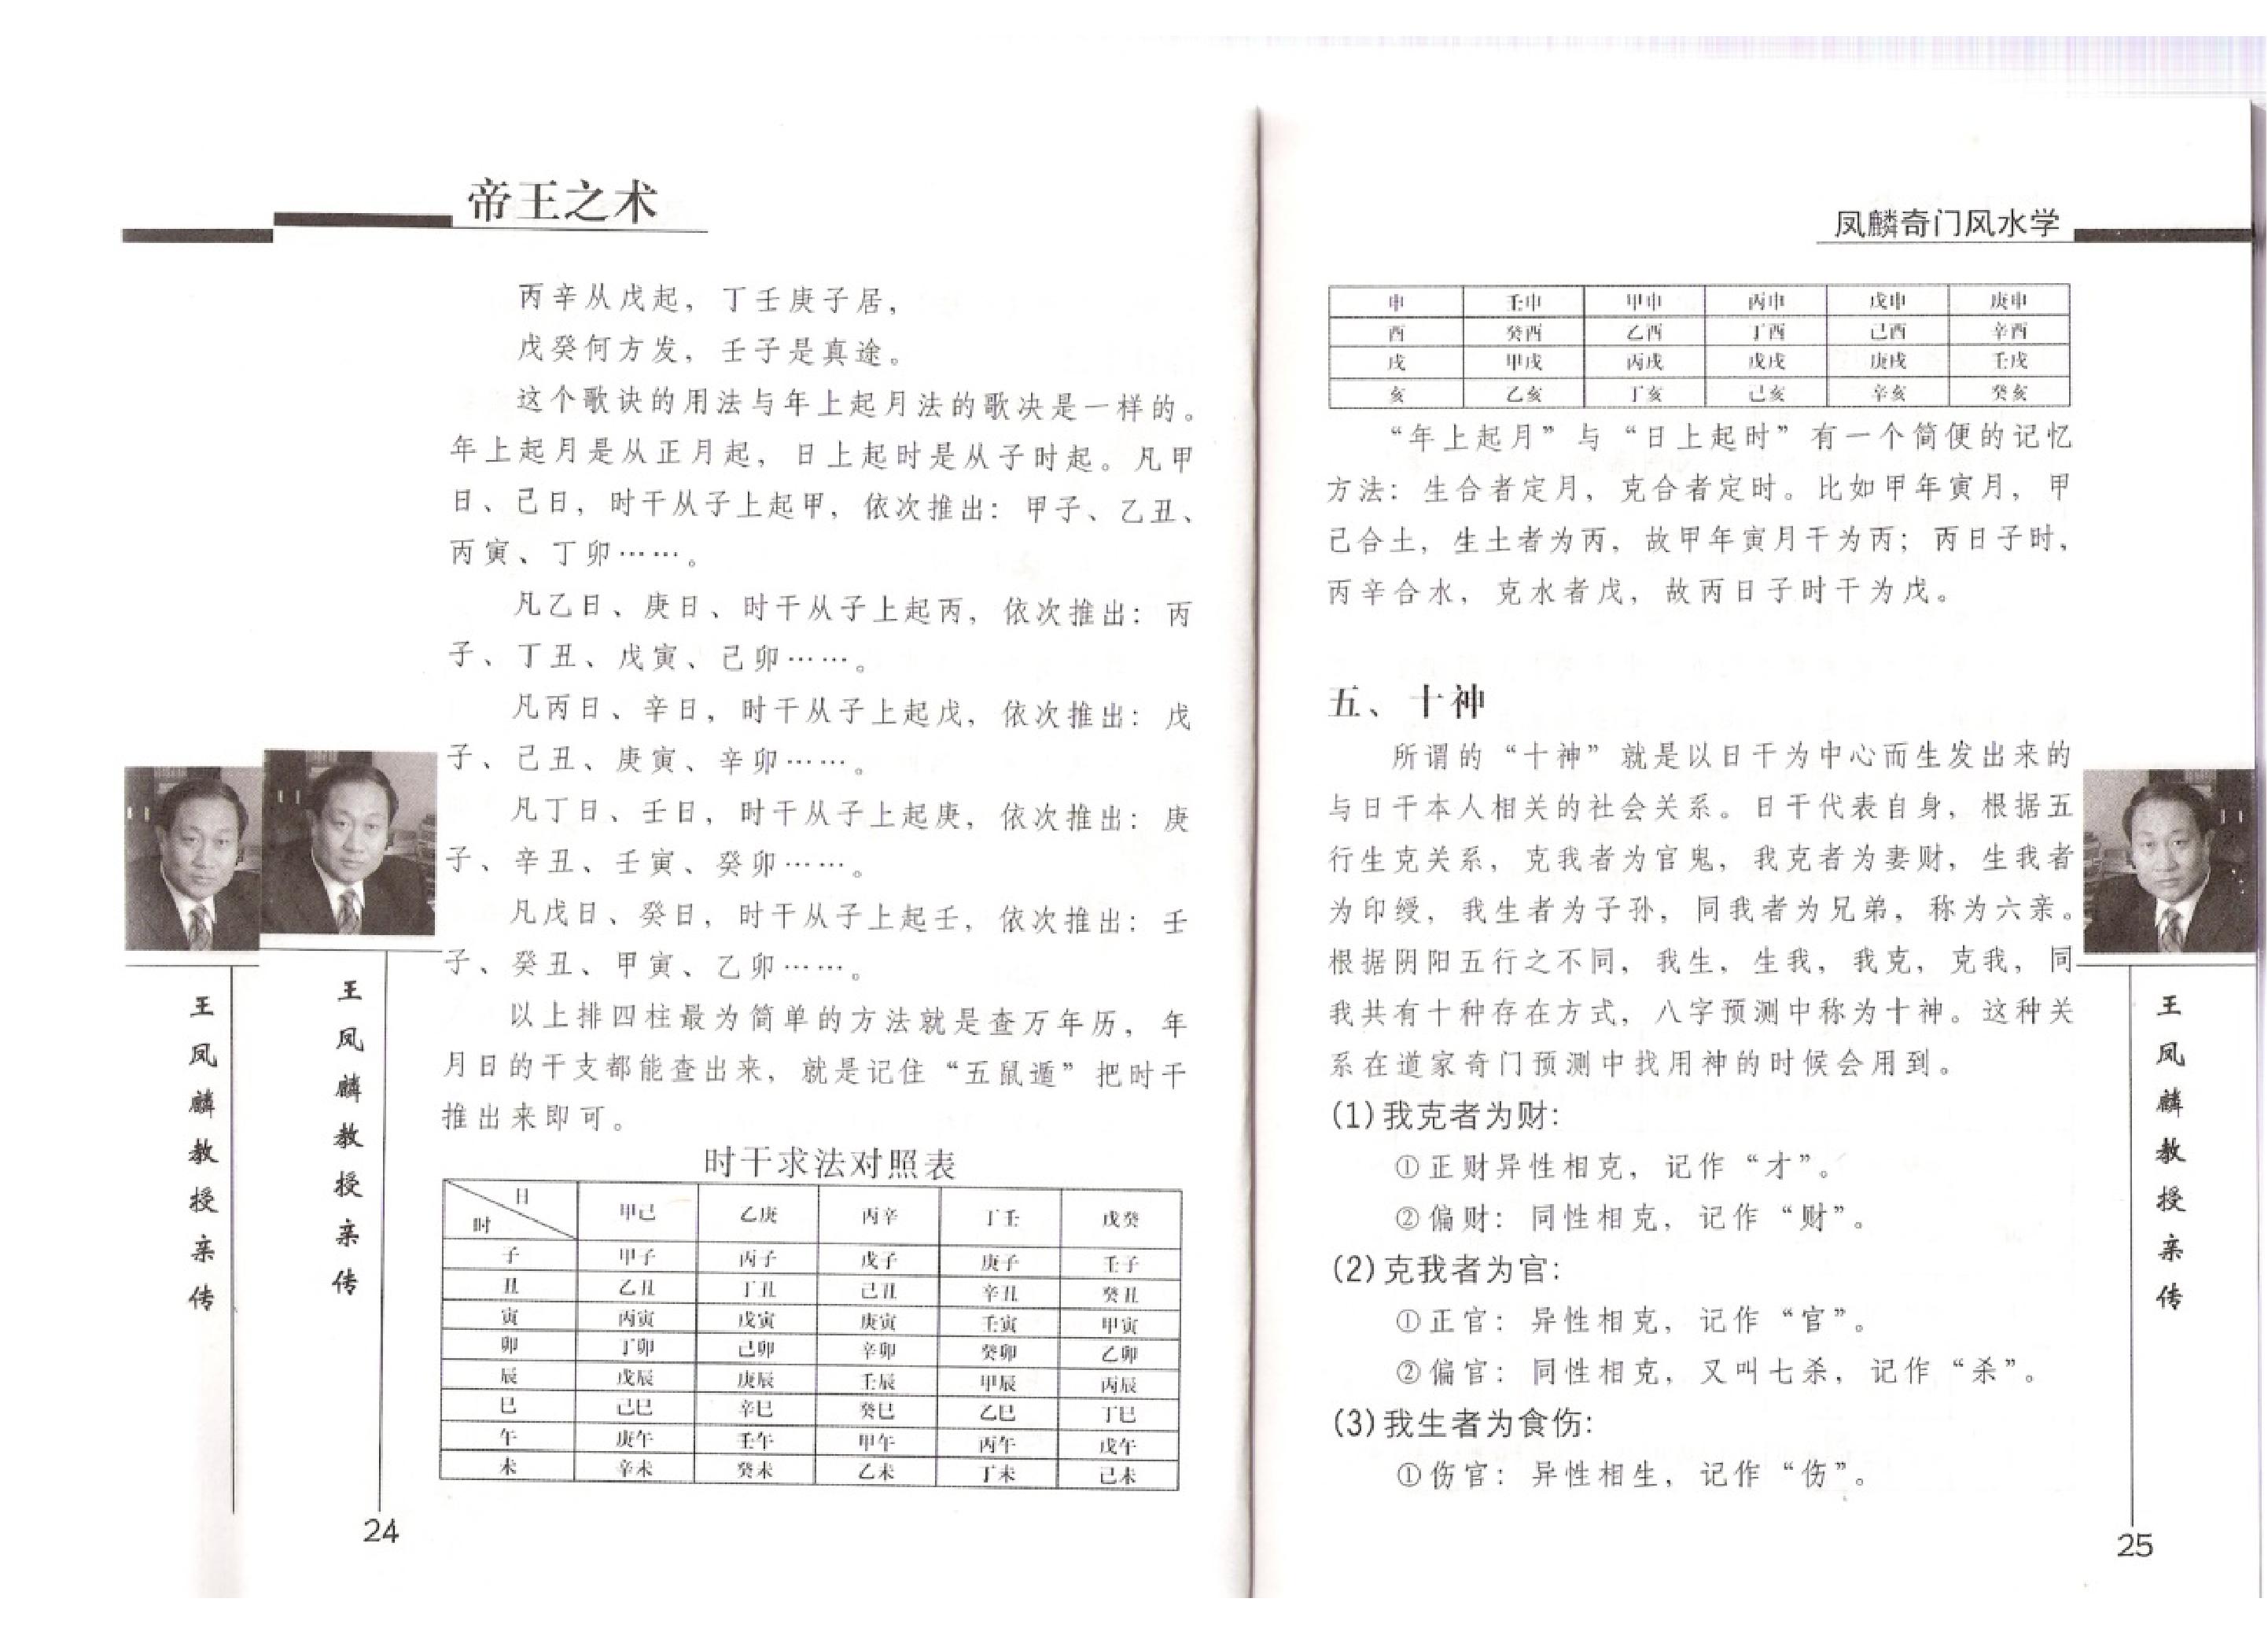 帝王之术
丙辛从戊起，丁壬庚子居，
戊癸何方发，壬子是真途。
这个歌诀的用法与年上起月法的歌决是一样的。
年上起月是从正月起，日上起时是从子时起。凡甲
日、己日，时干从子上起甲，依次推出：甲子、乙丑、
丙寅、丁卯……。
凡乙日、庚日、时干从子上起丙，依次推出：丙
子、丁丑、戊寅、己卯……。
凡丙日、辛日，时干从子上起戊，依次推出：戊
子、己丑、庚寅、辛卯……。
凡丁日、壬日，时干从子上起庚，依次推出：庚
子、辛丑、壬寅、癸卯……。
凡戊日、癸日，时干从子上起壬，依次推出：壬
子、癸丑、甲寅、乙卯……。
以上排四柱最为简单的方法就是查万年历，年
月日的干支都能查出来，就是记住“五鼠遁”把时干
推出来即可。
时干求法对照表
日 时 甲己 乙庚 丙辛 丁壬 戊癸
子 甲子 丙子 戊子 庚子 壬子
丑 乙丑 丁丑 己丑 辛丑 癸丑
寅 丙寅 戊寅 庚寅 壬寅 甲寅
卯 丁卯 己卯 辛卯 癸卯 乙卯
辰 戊辰 庚辰 壬辰 甲辰 丙辰
巳 己巳 辛巳 癸巳 乙巳 丁巳
午 庚午 壬午 甲午 丙午 戊午
未 辛未 癸未 乙未 丁未 己未
王凤麟教授亲传
王凤麟教授亲传
24
凤麟奇门风水学
申 壬申 甲申 丙申 戊申 庚申
酉 癸酉 乙酉 丁酉 己酉 辛酉
戌 甲戌 丙戌 戊戌 庚戌 壬戌
亥 乙亥 丁亥 己亥 辛亥 癸亥
“年上起月”与“日上起时”有一个简便的记忆
方法：生合者定月，克合者定时。比如甲年寅月，甲
己合土，生土者为丙，故甲年寅月干为丙；丙日子时，
丙辛合水，克水者戊，故丙日子时干为戊。
五、十神
所谓的“十神”就是以日干为中心而生发出来的
与日干本人相关的社会关系。日干代表自身，根据五
行生克关系，克我者为官鬼，我克者为妻财，生我者
为印绶，我生者为子孙，同我者为兄弟，称为六亲。
根据阴阳五行之不同，我生，生我，我克，克我，同
我共有十种存在方式，八字预测中称为十神。这种关
系在道家奇门预测中找用神的时候会用到。
(1)我克者为财：
①正财异性相克，记作“才”。
②偏财：同性相克，记作“财”。
(2)克我者为官：
①正官：异性相克，记作“官”。
②偏官：同性相克，又叫七杀，记作“杀”。
(3)我生者为食伤：
①伤官：异性相生，记作“伤”。
王凤麟教授亲传
25